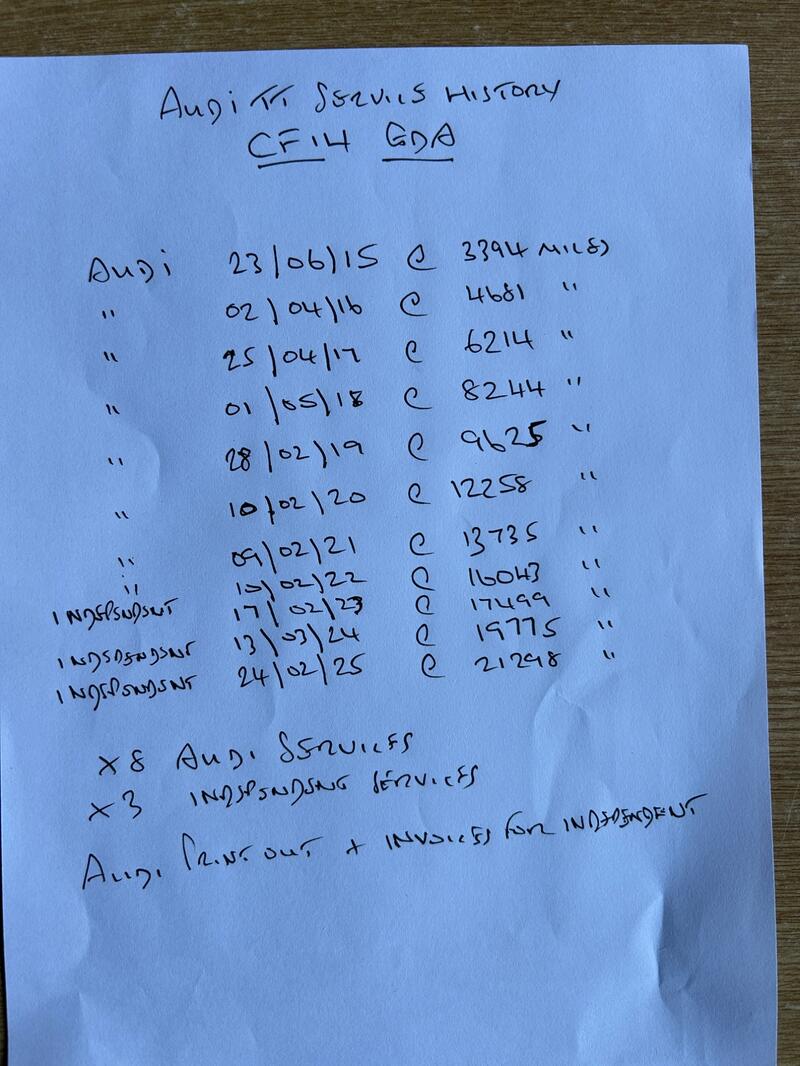 AUDI TT SERVICE HISTORY
CF14 GDA
AUDI 23/06/15 @ 3394 MILES
" 02/04/16 @ 4681 "
" 25/04/17 @ 6214 "
" 01/05/18 @ 8244 "
" 28/02/19 @ 9625 "
" 10/02/20 @ 12258 "
" 09/02/21 @ 13735 "
" 10/02/22 @ 16043 "
INDEPENDENT 17/02/23 @ 17499 "
INDEPENDENT 13/03/24 @ 19775 "
INDEPENDENT 24/02/25 @ 21298 "
x 8 AUDI SERVICES
x 3 INDEPENDENT SERVICES
AUDI PRINT OUT + INVOICES FOR INDEPENDENT